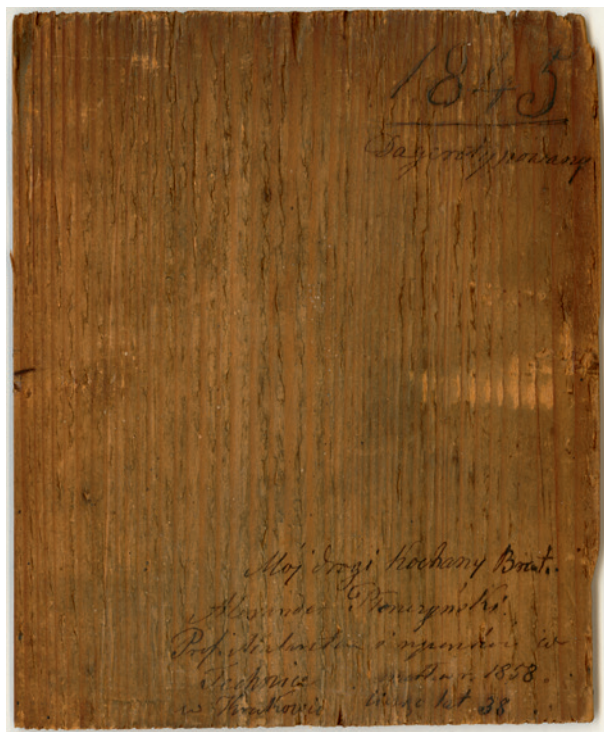 1845
Dagerotypowany
Mój drogi kochany Brat.
Alexander Płonczyński
Prof. i rysunków w
Technice r. 1858.
w Krakowie licząc lat 38.